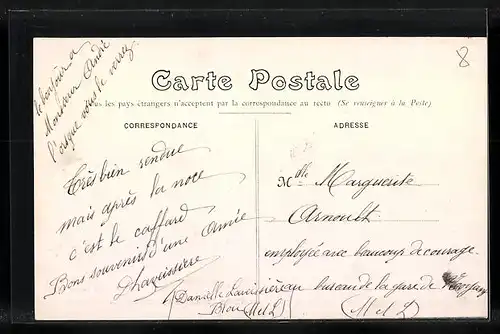 le bonjour a
Monsieur André
lorsque vous le verrez
8
Carte Postale
Tous les pays étrangers n'acceptent pas la correspondance au recto (Se renseigner à la Poste)
CORRESPONDANCE
Très bien rendue
mais après la noce
c'est le caffard
Bons souvenirs d'une Amie
ADRESSE
Mlle Marguerite
Arnoult
employée avec beaucoup de courage
au bureau de la gare de
(M et L)
Danielle
(M et L)